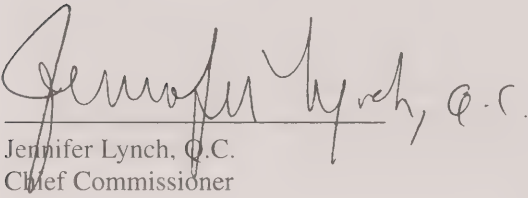 Jennifer Lynch, Q.C.
Jennifer Lynch, Q.C.
Chief Commissioner